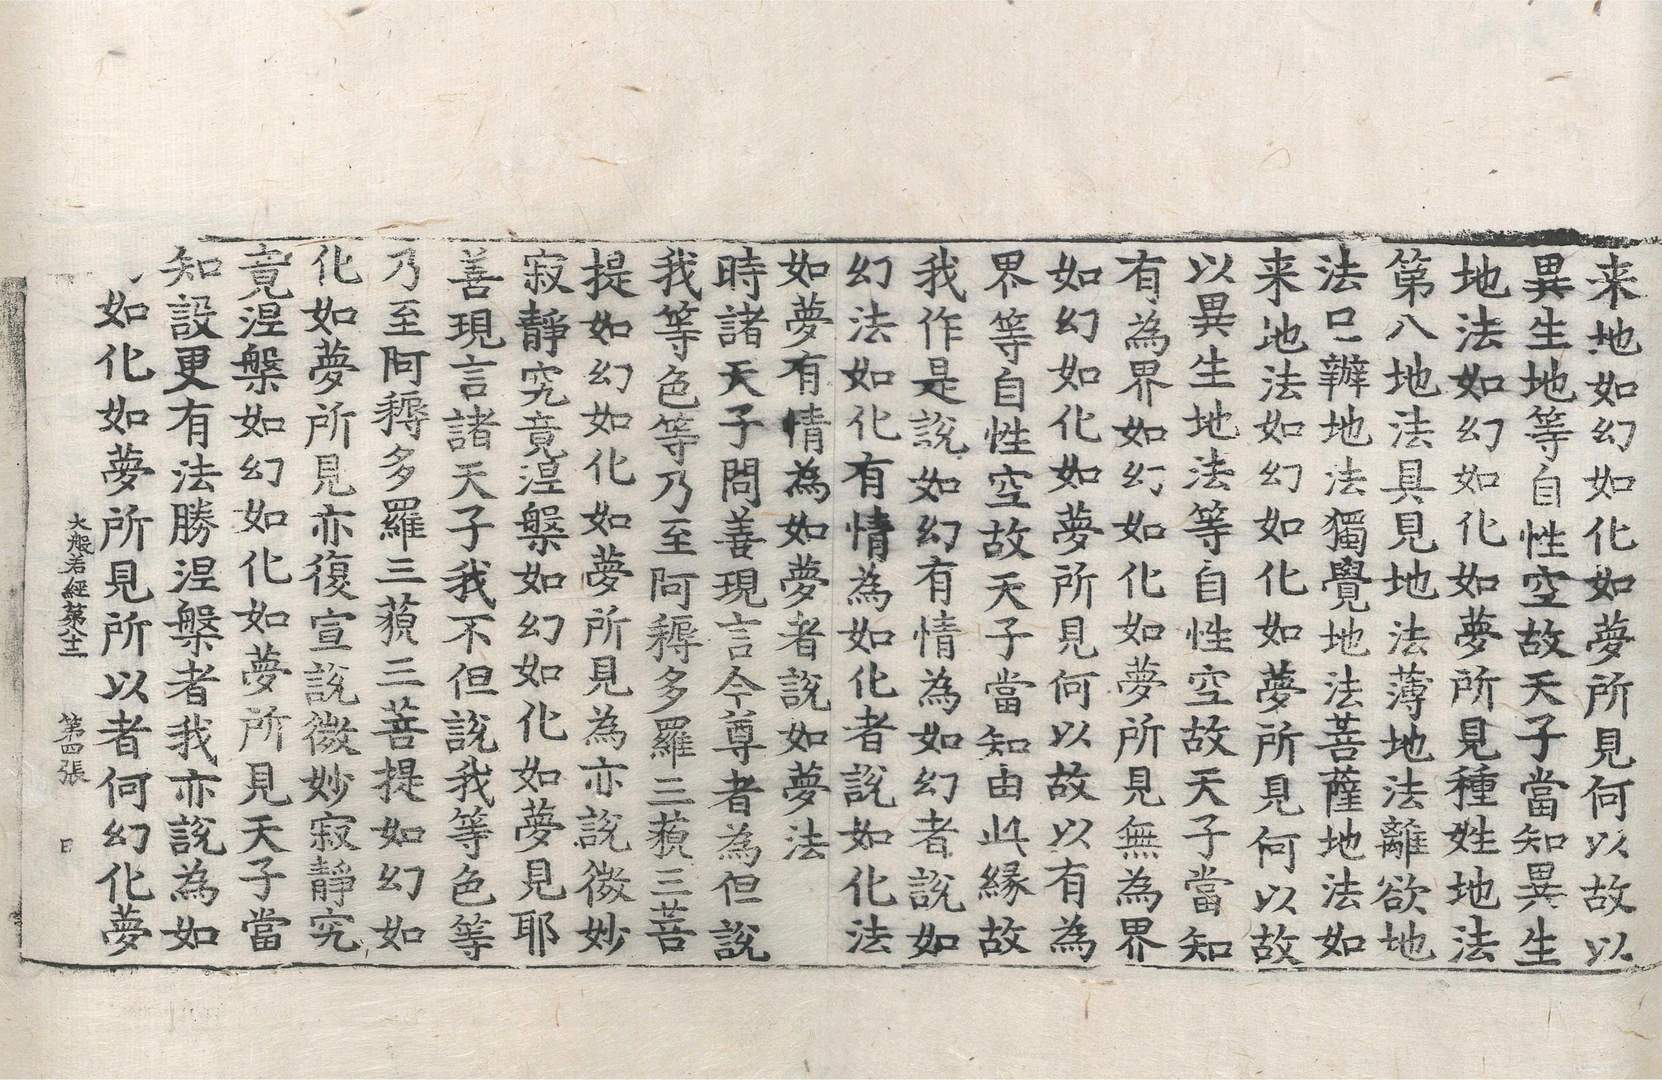 来地如幻如化如夢所見何以故以
異生地等自性空故天子當知異生
地法如幻如化如夢所見種姓地法
第八地法具見地法薄地法離欲地
法已辦地法獨覺地法菩薩地法如
来地法如幻如化如夢所見何以故
以異生地法等自性空故天子當知
有為界如幻如化如夢所見無為界
如幻如化如夢所見何以故以有為
界等自性空故天子當知由此緣故
我作是說如幻有情為如幻者說如
幻法如化有情為如化者說如化法
如夢有情為如夢者說如夢法
時諸天子問善現言今尊者為但說
我等色等乃至阿耨多羅三藐三菩
提如幻如化如夢所見為亦說微妙
寂靜究竟涅槃如幻如化如夢見耶
善現言諸天子我不但說我等色等
乃至阿耨多羅三藐三菩提如幻如
化如夢所見亦復宣說微妙寂靜究
竟涅槃如幻如化如夢所見天子當
知設更有法勝涅槃者我亦說為如
如化如夢所見所以者何幻化夢
大般若經第八十二 第四張 日